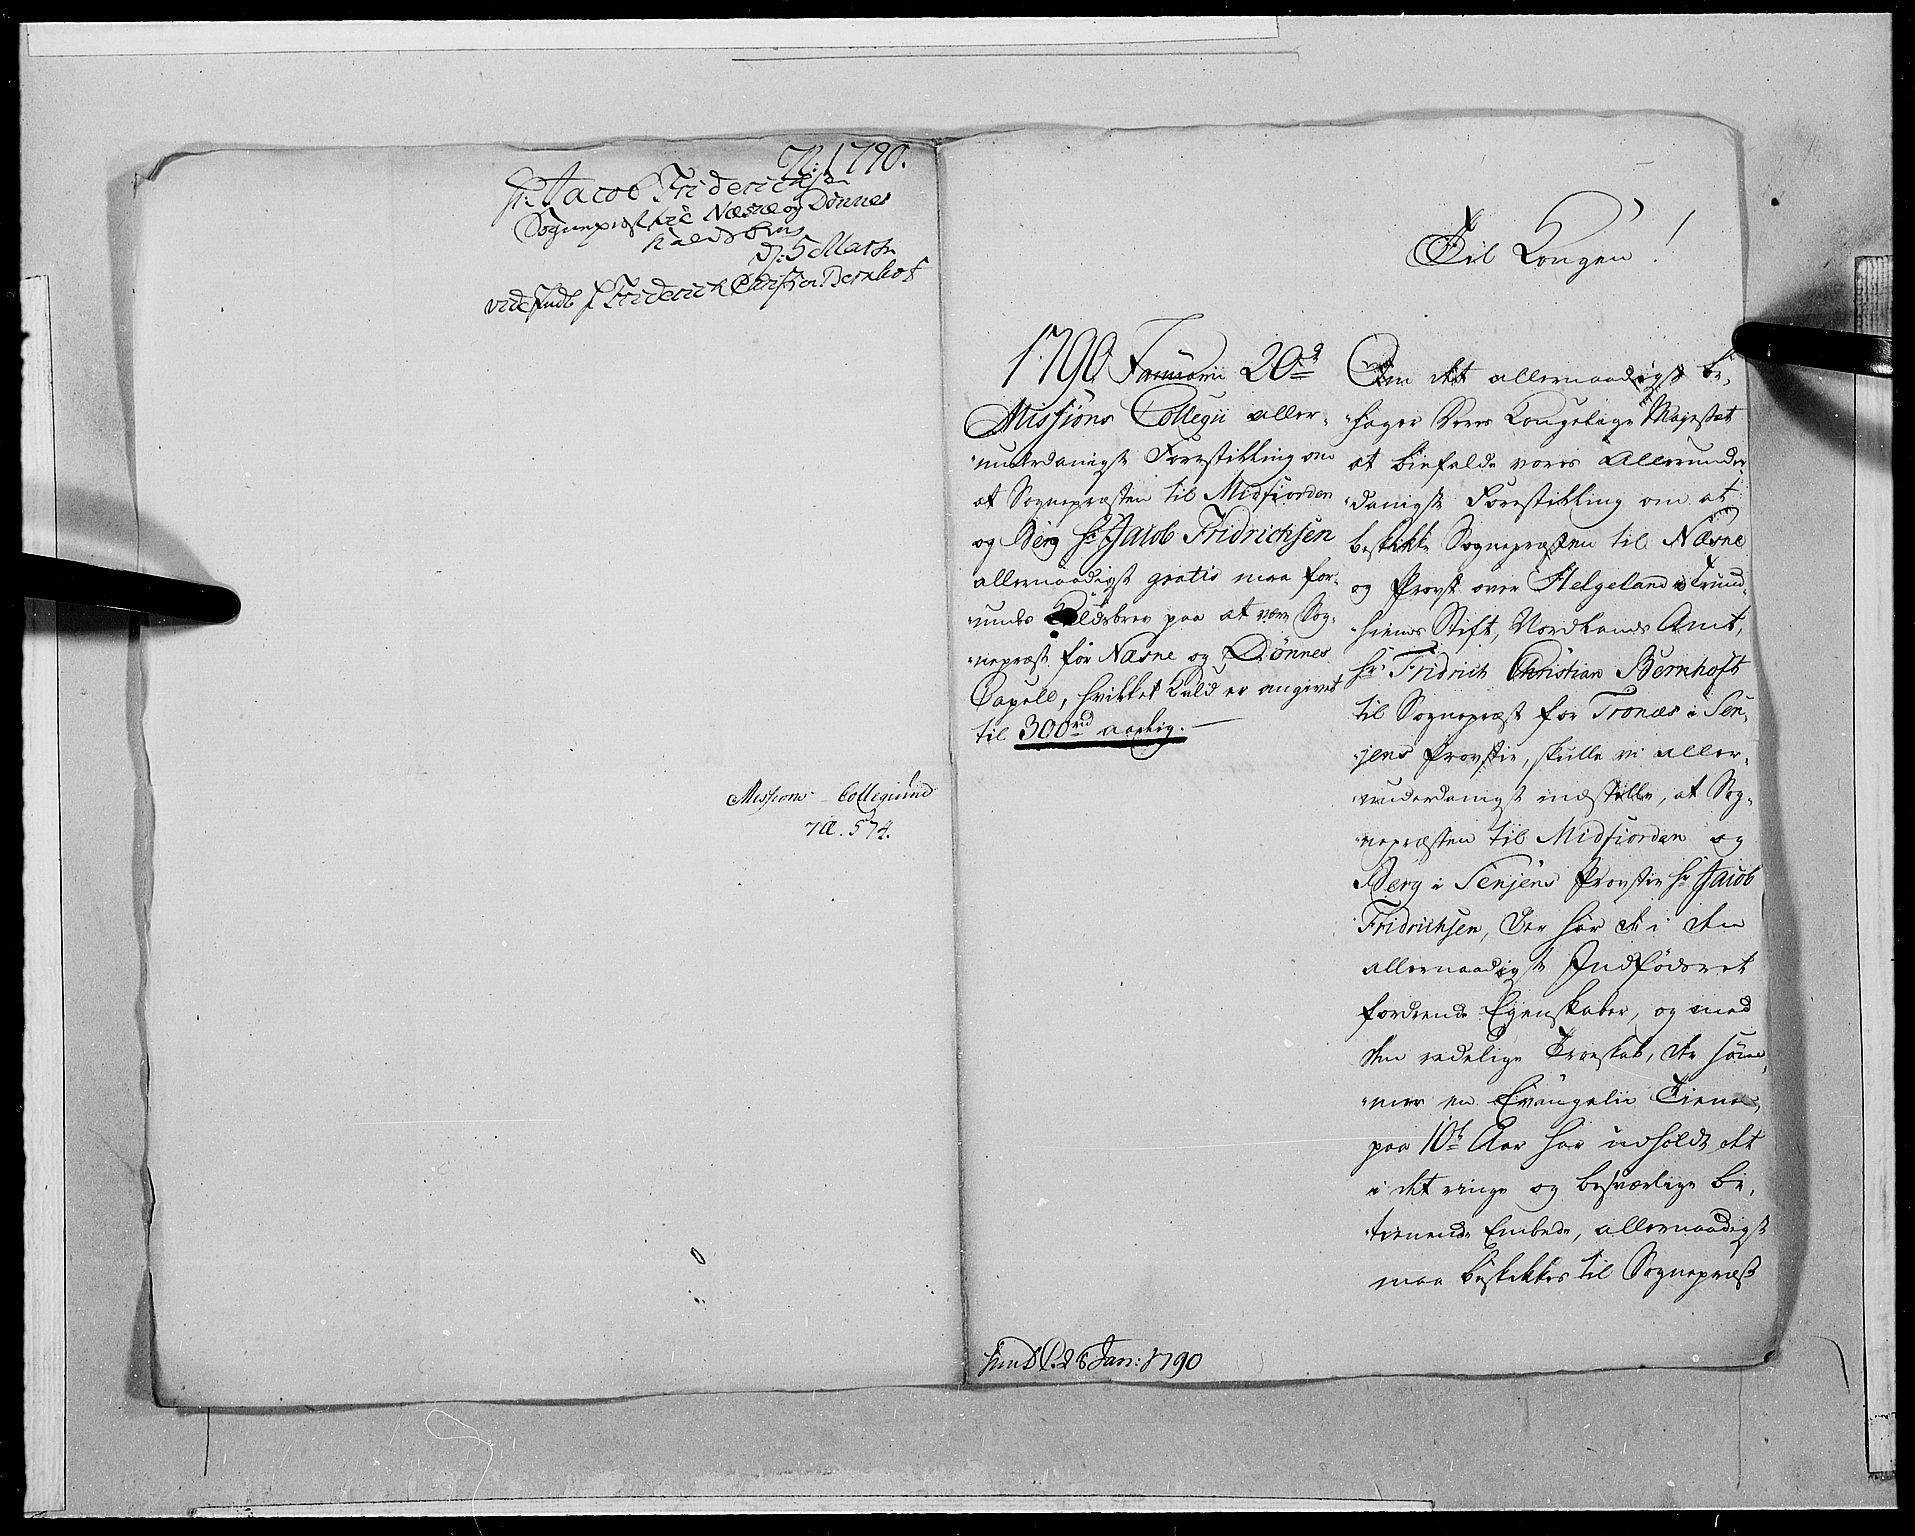 N: 1790.
Hr. Jacob Friderichsen
Sognepræst til Næsne og Dønnes
Kaldsbrev
D: 5 Marti
vide Indl. f. Friderich Christian Bernhoft
Missions-Collegium
574.
Til Kongen!
1790 Januarii 20de
Missions Collegii aller-
-underdanigste Forestilling om
at Sognepræsten til Midfiorden
og Berg Hr Jacob Fridrichsen
allernaadigst gratis maa for-
-undes Kaldsbrev paa at være Sog-
-nepræst for Næsne og Dønnes
Capell, hvilket Kald er angivet
til 300 rd aarlig.
Om det allernaadigst be-
-hager Deres Kongelige Majestæt
at biefalde vores Allerunder-
-danigste Forestilling om at
beskikke Sognepræsten til Næsne
og Provst over Helgeland i Trund-
-hiems Stift, Nordlands Amt,
Hr Fridrich Christian Bernhoft
til Sognepræst for Tronæs i Sen-
-jens Provstie, skulle vi aller-
-underdanigst indstille, at Sog-
-nepræsten til Midfiorden og
Berg i Senjens Provstie Hr Jacob
Fridrichsen, der har de i den
allernaadigste Indfødsret
fordrende Egenskaber, og med
den redelige Troeskab, der søm-
-mer en Evangelii Tiener,
paa 10de Aar har udholdt det
i det ringe og besværlige be-
-tienende Embede, allernaadigst
maa beskikkes til Sognepræst
28 Jan: 1790